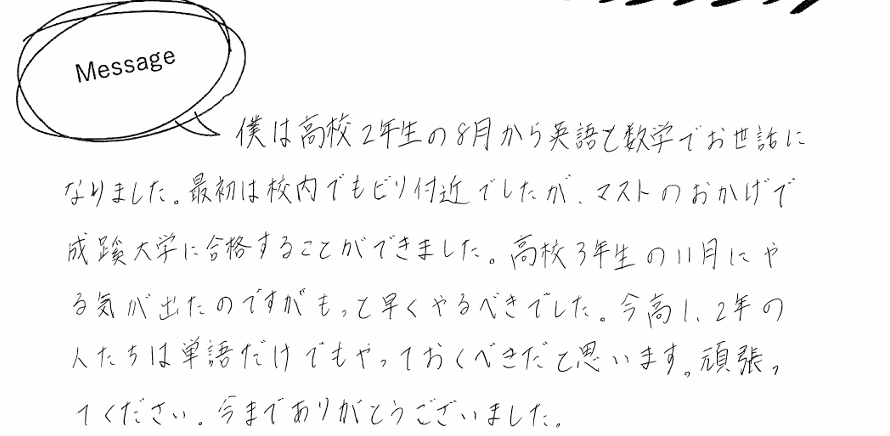 Message
僕は高校2年生の8月から英語と数学でお世話に
なりました。最初は校内でもビリ付近でしたが、マストのおかげで
成蹊大学に合格することができました。高校3年生の11月にや
る気が出たのですがもっと早くやるべきでした。今高1、2年の
人たちは単語だけでもやっておくべきだと思います。頑張っ
てください。今までありがとうございました。